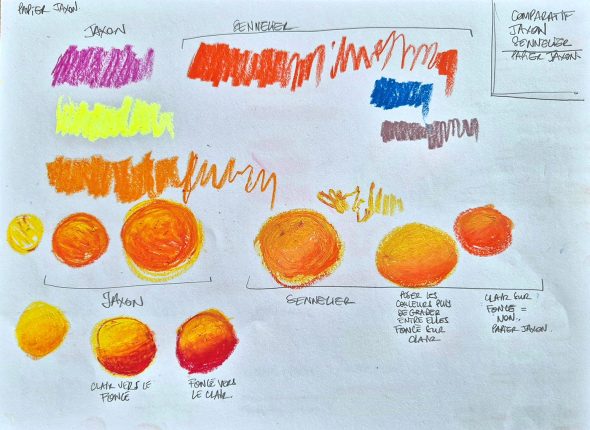 PAPIER JAXON
JAXON
SENNELIER
COMPARATIF
JAXON
SENNELIER
PAPIER JAXON.
JAXON
SENNELIER
POSER LES
COULEURS PUIS
DEGRADER
ENTRE ELLES
FONCÉ SUR
CLAIR
CLAIR SUR
FONCÉ =
NON.
PAPIER JAXON.
CLAIR VERS LE
FONCÉ
FONCÉ VERS
LE CLAIR.